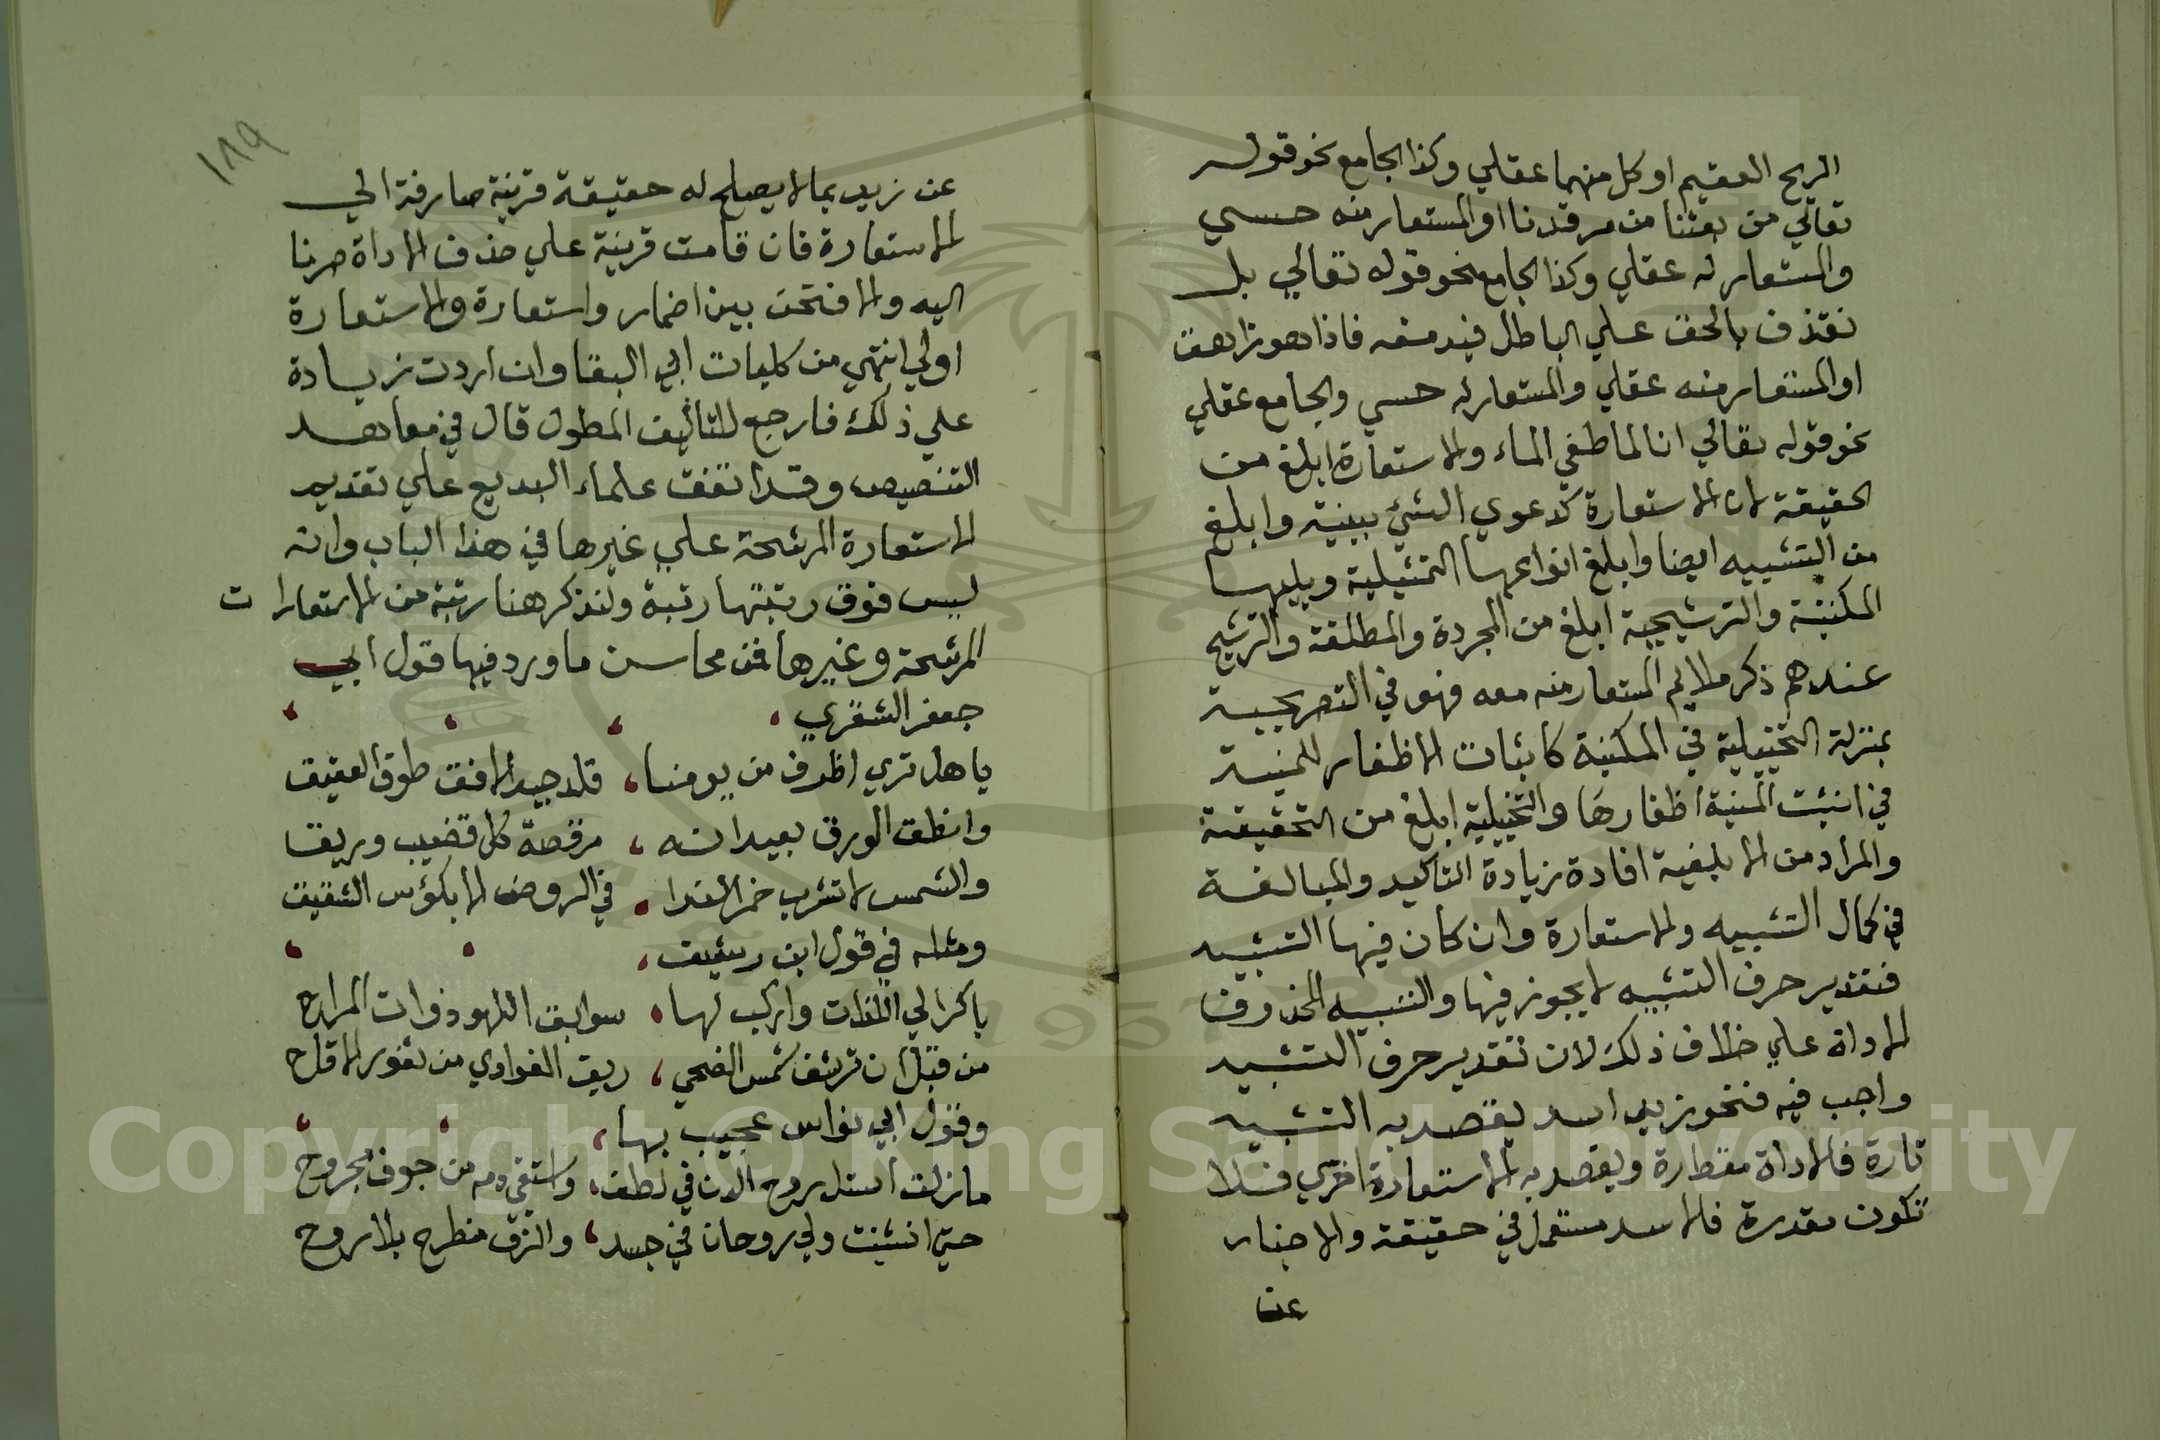 الريح العقيم او كل منهما عقلي وكذا الجامع نحو قوله
تعالي من بعثنا من مرقدنا او المستعار منه حسي
والمستعار له عقلي وكذا الجامع نحو قوله تعالي بل
نقذف بالحق علي الباطل فيدمغه فاذا هو زاهق
او المستعار منه عقلي والمستعار له حسي والجامع عقلي
نحو قوله تعالي انا لما طغي الماء والاستعارة ابلغ من
الحقيقة لان الاستعارة كدعوي الشئ ببينة وابلغ
من التشبيه ايضا وابلغ انواعها التمثيلية ويليها
المكنية والترشيحية ابلغ من المجردة والمطلقة والترشيح
عندهم ذكر ملايم المستعار منه معه فهو في التصريحية
بمنزلة التخييلية في المكنية كاثبات الاظفار للمنية
في انبتت المنية اظفارها والتخييلية ابلغ من التحقيقية
والمراد من الابلغية افادة زيادة التاكيد والمبالغة
في كمال التشبيه والاستعارة وان كان فيها التشبيه
فتقدير حرف التشبيه لا يجوز فيها والتشبيه المحذوف
الاداة علي خلاف ذلك لان تقدير حرف التشبيه
واجب فيه فنحو زيد اسد يقصد به التشبيه
تارة فالاداة مقدرة ويقصد به الاستعارة اخري فلا
تكون مقدرة فالاسد مستعمل في حقيقة والاخبار
عن
١٨٩
عن زيد بما لا يصلح له حقيقة قرينة صارفة الي
الاستعارة فان قامت قرينة علي حذف الاداة صرنا
اليه والا فنحن بين اضمار واستعارة والاستعارة
اولي انتهي من كليات ابي البقا وان اردت زيادة
علي ذلك فارجع للتأليف المطول قال في معاهد
التنصيص وقد اتفق علماء البديع علي تقديم
الاستعارة المرشحة علي غيرها في هذا الباب وانه
ليس فوق رتبتها رتبة ولنذكر هنا رتبة من الاستعارات
المرشحة وغيرها فمن محاسن ما ورد فيها قول ابي
جعفر الشقري
يا هل تري اظرف من يومنا، قلد جيد الافق طوق العقيق
وانطق الورق بعيدانه، مرقصة كل قضيب وريق
والشمس لا تشرب خمر الندا، في الروض الا بكؤس الشقيق
ومثله في قول ابن رشيق،
باكر الي اللذات واركب لها، سوابق اللهو ذوات المراح
من قبل ان ترشف شمس الضحي، ريق الغوادي من ثغور الاقاح
وقول ابي نواس عجيب بها،
ما زلت استل روح الدن في لطف، واستقي دمه من جوف مجروح
حتي انثنيت ولي روحان في جسد، والزق منطرح بلا روح
Copyright © King Saud University
1957